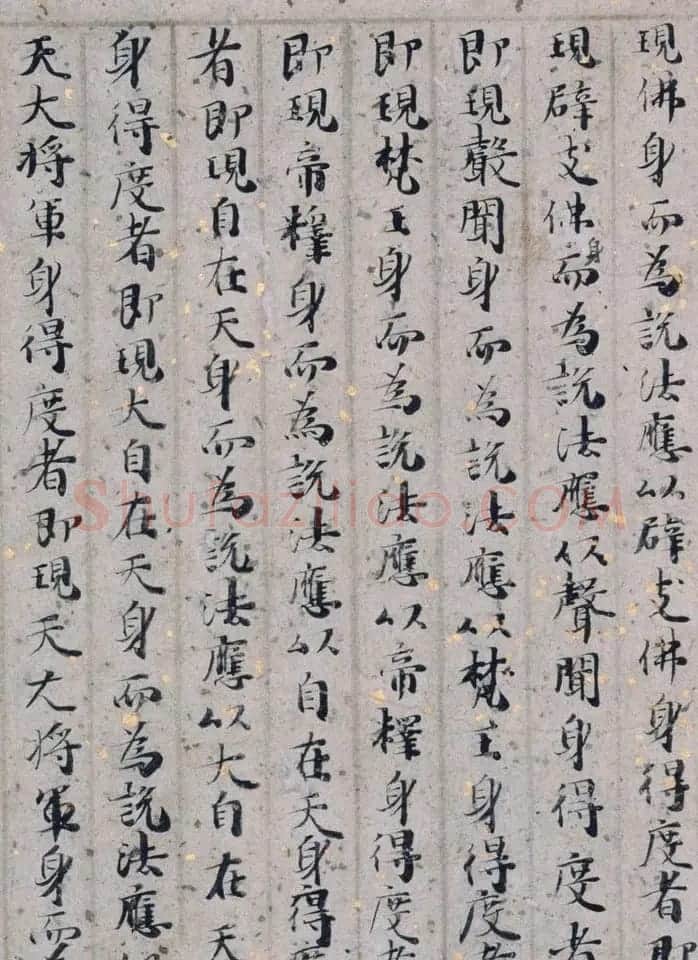 現佛身而為説法應以辟支佛身得度者即
現辟支佛身而為説法應以聲聞身得度者
即現聲聞身而為説法應以梵王身得度者
即現梵王身而為説法應以帝釋身得度者
即現帝釋身而為説法應以自在天身得度
者即現自在天身而為説法應以大自在天
身得度者即現大自在天身而為説法應以
天大将軍身得度者即現天大将軍身而為
Shufaziliao.COM